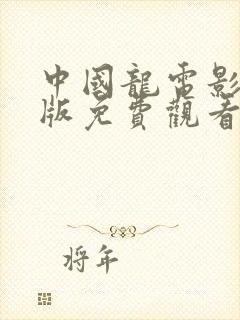 中國龍電影
版免費觀看
將年